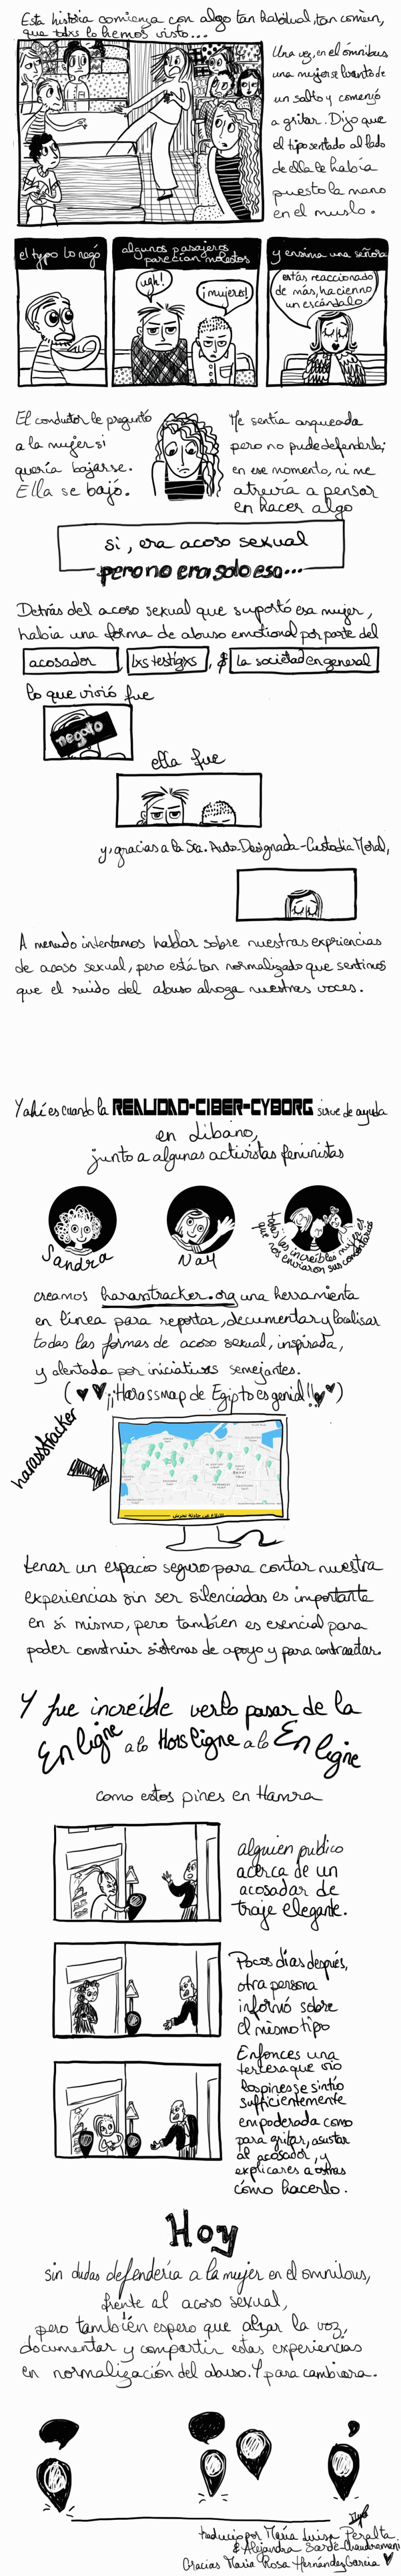 Esta historia comienza con algo tan habitual, tan común,
que todxs lo hemos visto...
Una vez, en el ómnibus
una mujer se levantó de
un salto y comenzó
a gritar. Dijo que
el tipo sentado al lado
de ella le había
puesto la mano
en el muslo.
el typo lo negó
algunos pasajeros
parecían molestos
ugh!
¡mujeres!
y ensima una señora
estás reaccionado
de más, hacienno
un escándalo
El condutor le preguntó
a la mujer si
quería bajarse.
Ella se bajó.
Me sentía asqueada
pero no pude defenderla;
en ese momento, ni me
atrevía a pensar
en hacer algo
si, era acoso sexual
pero no era solo eso...
Detrás del acoso sexual que suportó esa mujer,
había una forma de abuso emotional por parte del
acosador, lxs testigxs, & la sociedad en general
lo que vivió fue
negato
ella fue
y, gracias a la Sra. Auto-Designada-Custodia Moral,
A menudo intentamos hablar sobre nuestras expriencias
de acoso sexual, pero está tan normalizado que sentimos
que el ruido del abuso ahoga nuestras voces.
Y ahí es cuando la REALIDAD-CIBER-CYBORG sirve de ayuda
en Líbano,
junto a algunas activistas feministas
Sandra
Nay
todas las increíbles mujeres
que nos enviaron sus comentarios
creamos harasstracker.org una herramienta
en línea para reportar, decumentar y localisar
todas las formas de acoso sexual, inspirada,
y alentada por iniciativas semejantes.
(♥♥¡¡Harassmap de Egipto es genial!!♥♥)
harasstracker
Beirut
tenar un espacio seguro para contar nuestra
experiencias sin ser silenciadas es importante
en sí mismo, pero tambíen es esencial para
poder construir sistemas de apoyo y para contraactar.
Y fue increíble verlo pasar de la
En ligne a lo Hors ligne a lo En ligne
como estos pines en Hamra
alguien publico
acerca de un
acosadar de
traje elegante.
Pocos días después,
otra persona
informó sobre
el mismo tipo
Enfonces una
tercera que vio
los pines se sintío
sufficientemente
empoderada como
para gritar, asustar
al acosador, y
explicares a ostras
cómo hacerlo.
Hoy
sin dudas defendería a la mujer en el omnibus,
frente al acoso sexual,
pero también espero que alzar la voz,
documentar y compartir estas experiencias
en normalización del abuso. Y para cambiara.
traducio por María Luisa Peralta
& Alejandra Sardá-Chandiramani
Gracias María Rosa Hernández García ♥